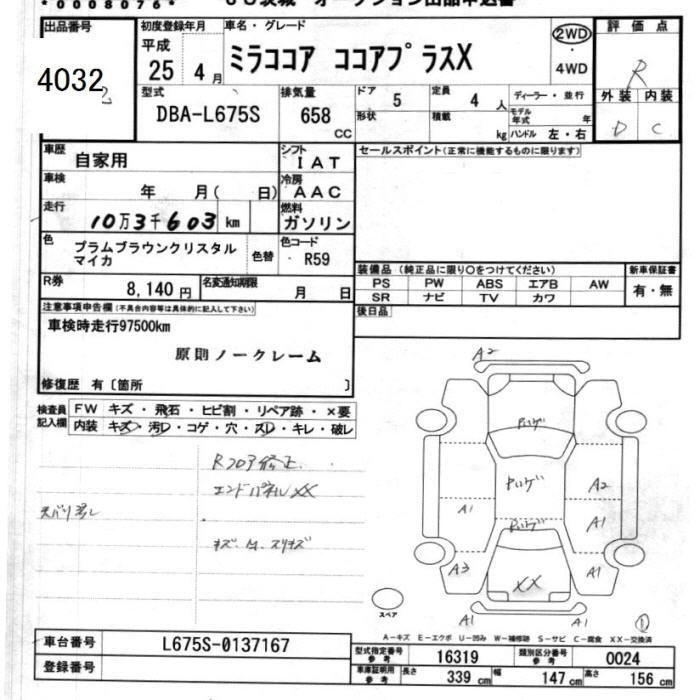 *0008076*
出品番号
4032
初度登録年月
平成
25 年 4 月
車名・グレード
ミラココア ココアプラスX
2WD
4WD
評価点
R
外装 内装
D C
型式
DBA-L675S
排気量
658
CC
ドア
5
形状
定員
4 人
積載
kg
ディーラー・並行
モデル年式 年
ハンドル 左・右
車歴
自家用
シフト
IAT
セールスポイント(正常に機能するものに限ります)
車検
年 月( 日)
冷房
AAC
走行
10万3千603 km
燃料
ガソリン
色
プラムブラウンクリスタル
マイカ
色替
色コード
R59
装備品(純正品に限り○をつけてください)
PS PW ABS エアB AW
SR ナビ TV カワ
新車保証書
有・無
R券
8,140円
名変通知期限
月 日
後日品
注意事項申告欄(不具合内容等は具体的に記入して下さい)
車検時走行97500km
原則ノークレーム
修復歴 有〔箇所 〕
検査員
記入欄
FW キズ・飛石・ヒビ割・リペア跡・×要
内装 キズ・汚レ・コゲ・穴・スレ・キレ・破レ
Rフロア修正
エンドパネルXX
A2
A1
A2
A1
A3
A1
XX
A1
A1
スペア
①
A-キズ E-エクボ U-凹み W-補修跡 S-サビ C-腐食 XX-交換済
車台番号
L675S-0137167
登録番号
型式指定番号
参考
16319
類別区分番号
参考
0024
車庫証明用
参考
長さ
339 cm
幅
147 cm
高さ
156 cm